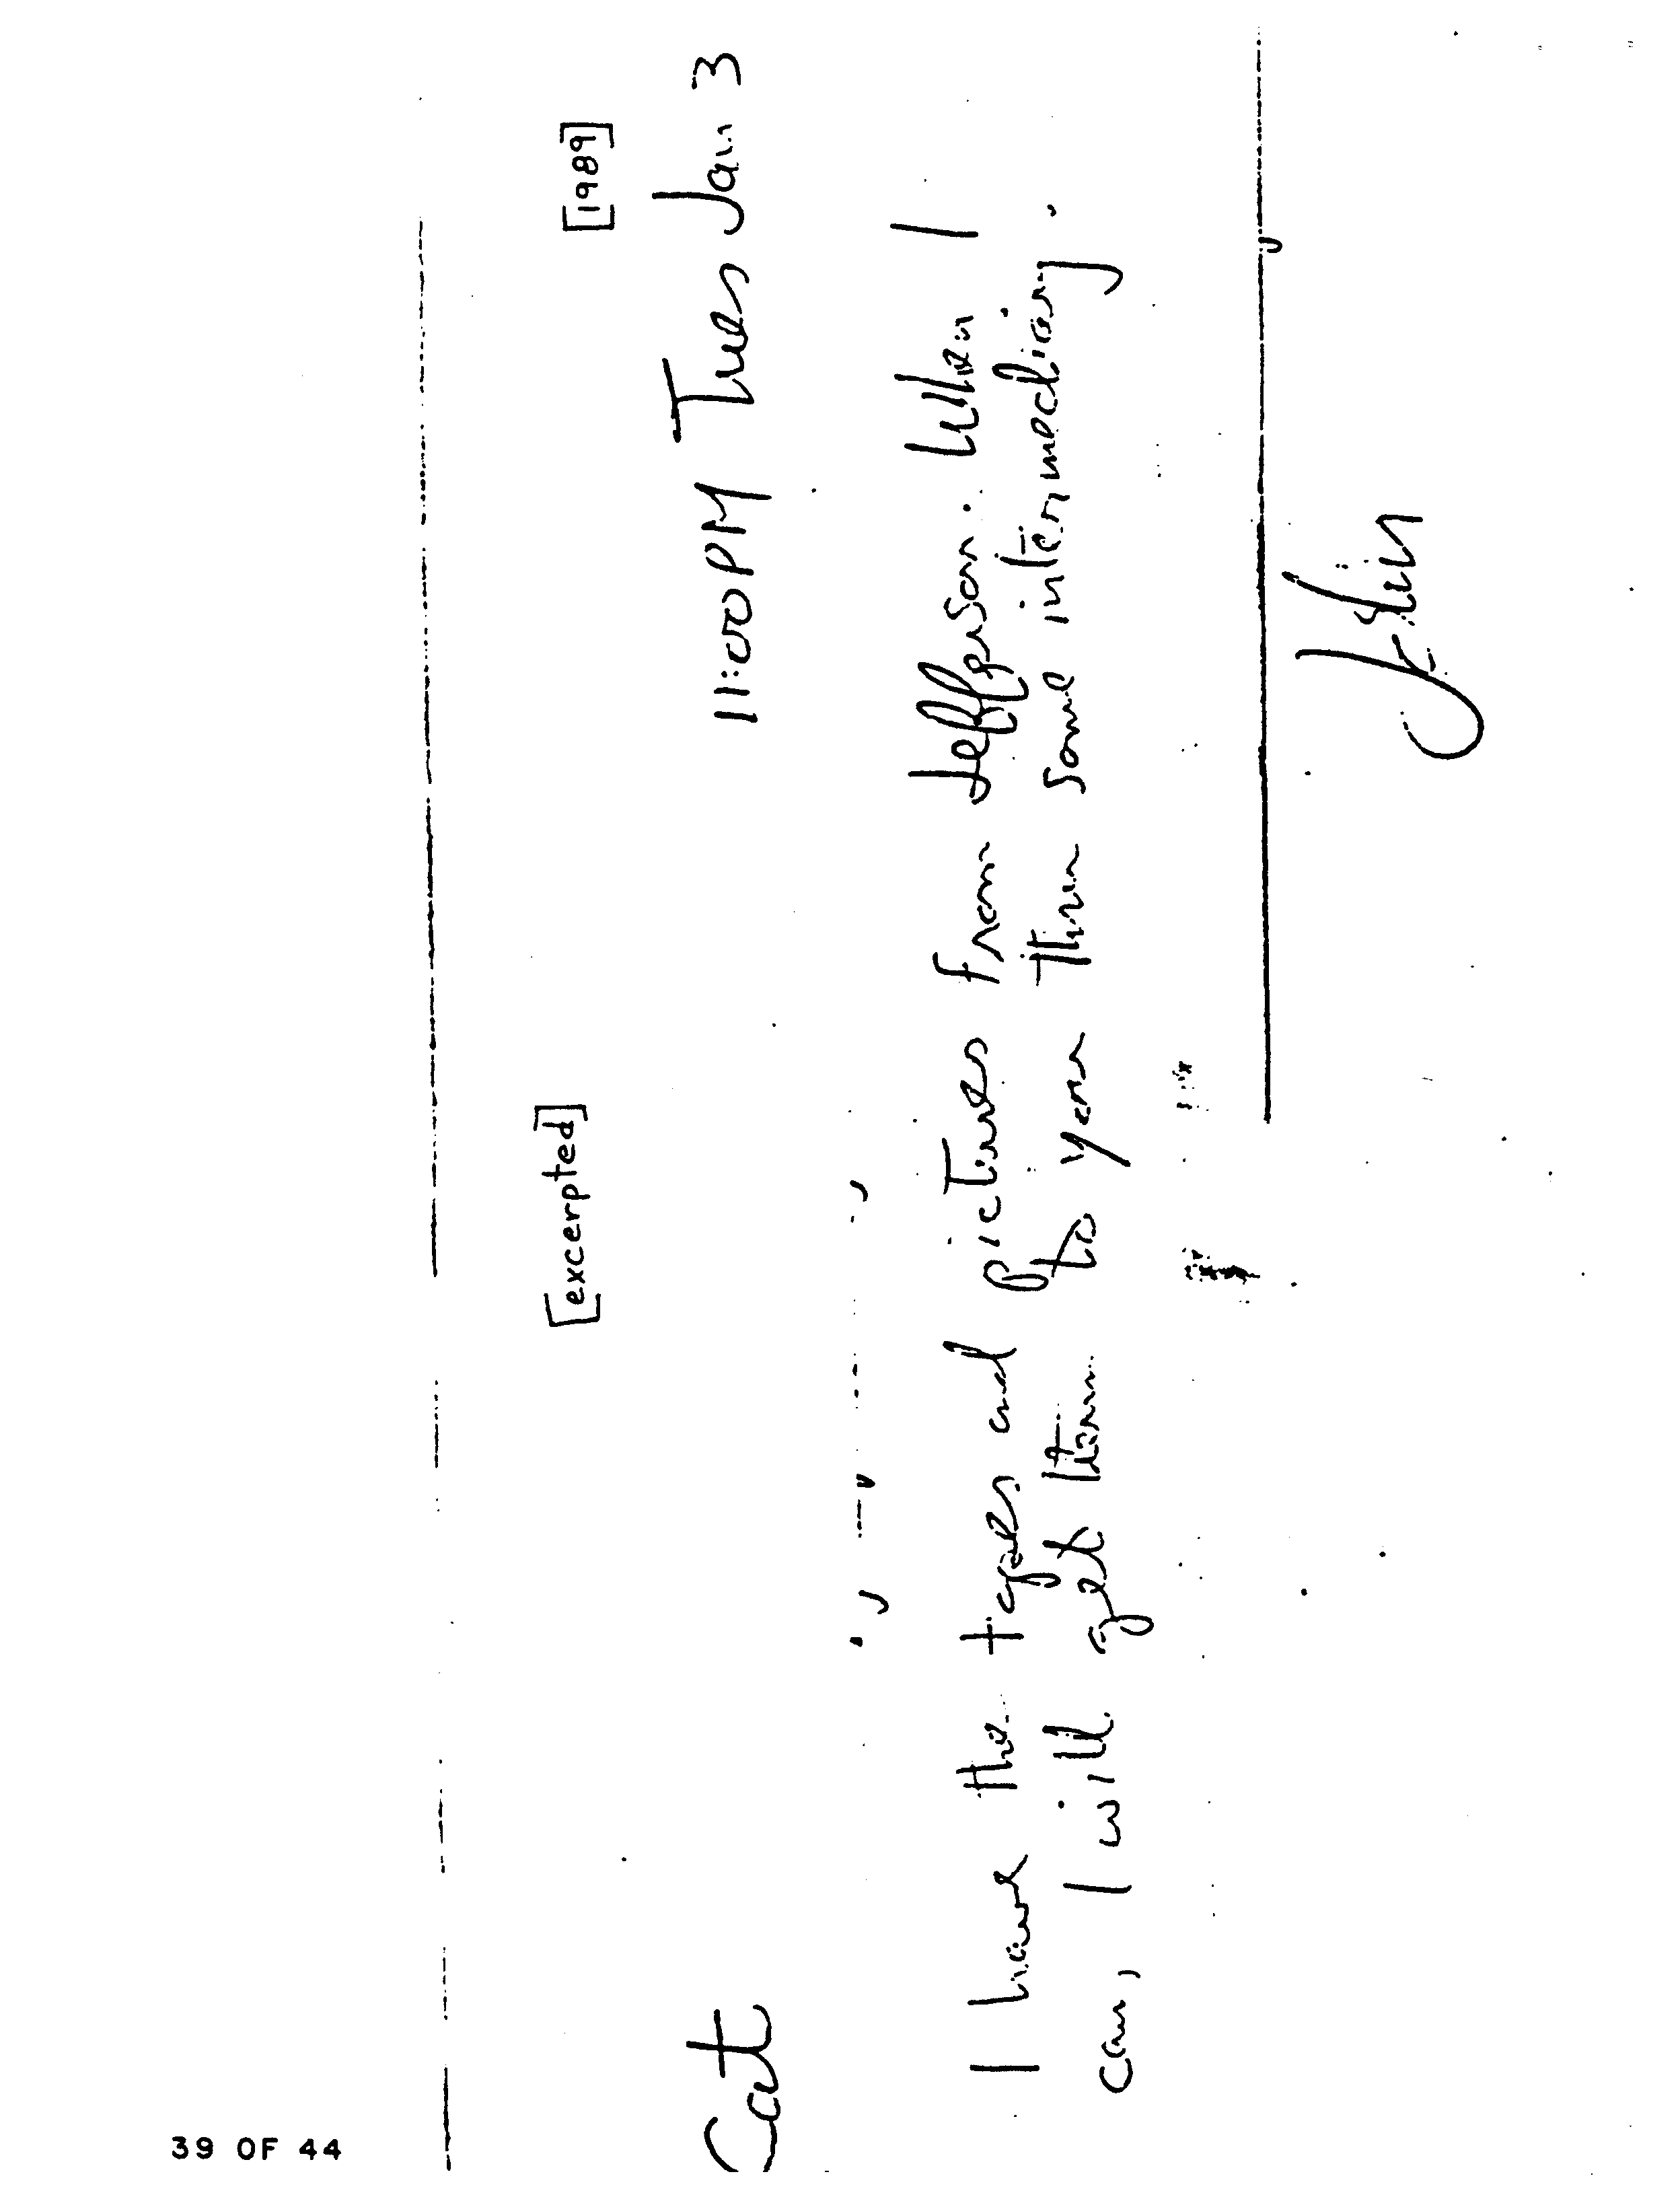 39 OF 44
[excerpted] [1989]
Cat 11:00PM Tues Jan 3
I have the tapes and pictures from Jefferson. When I
can, I will get them to you thru some intermediary.